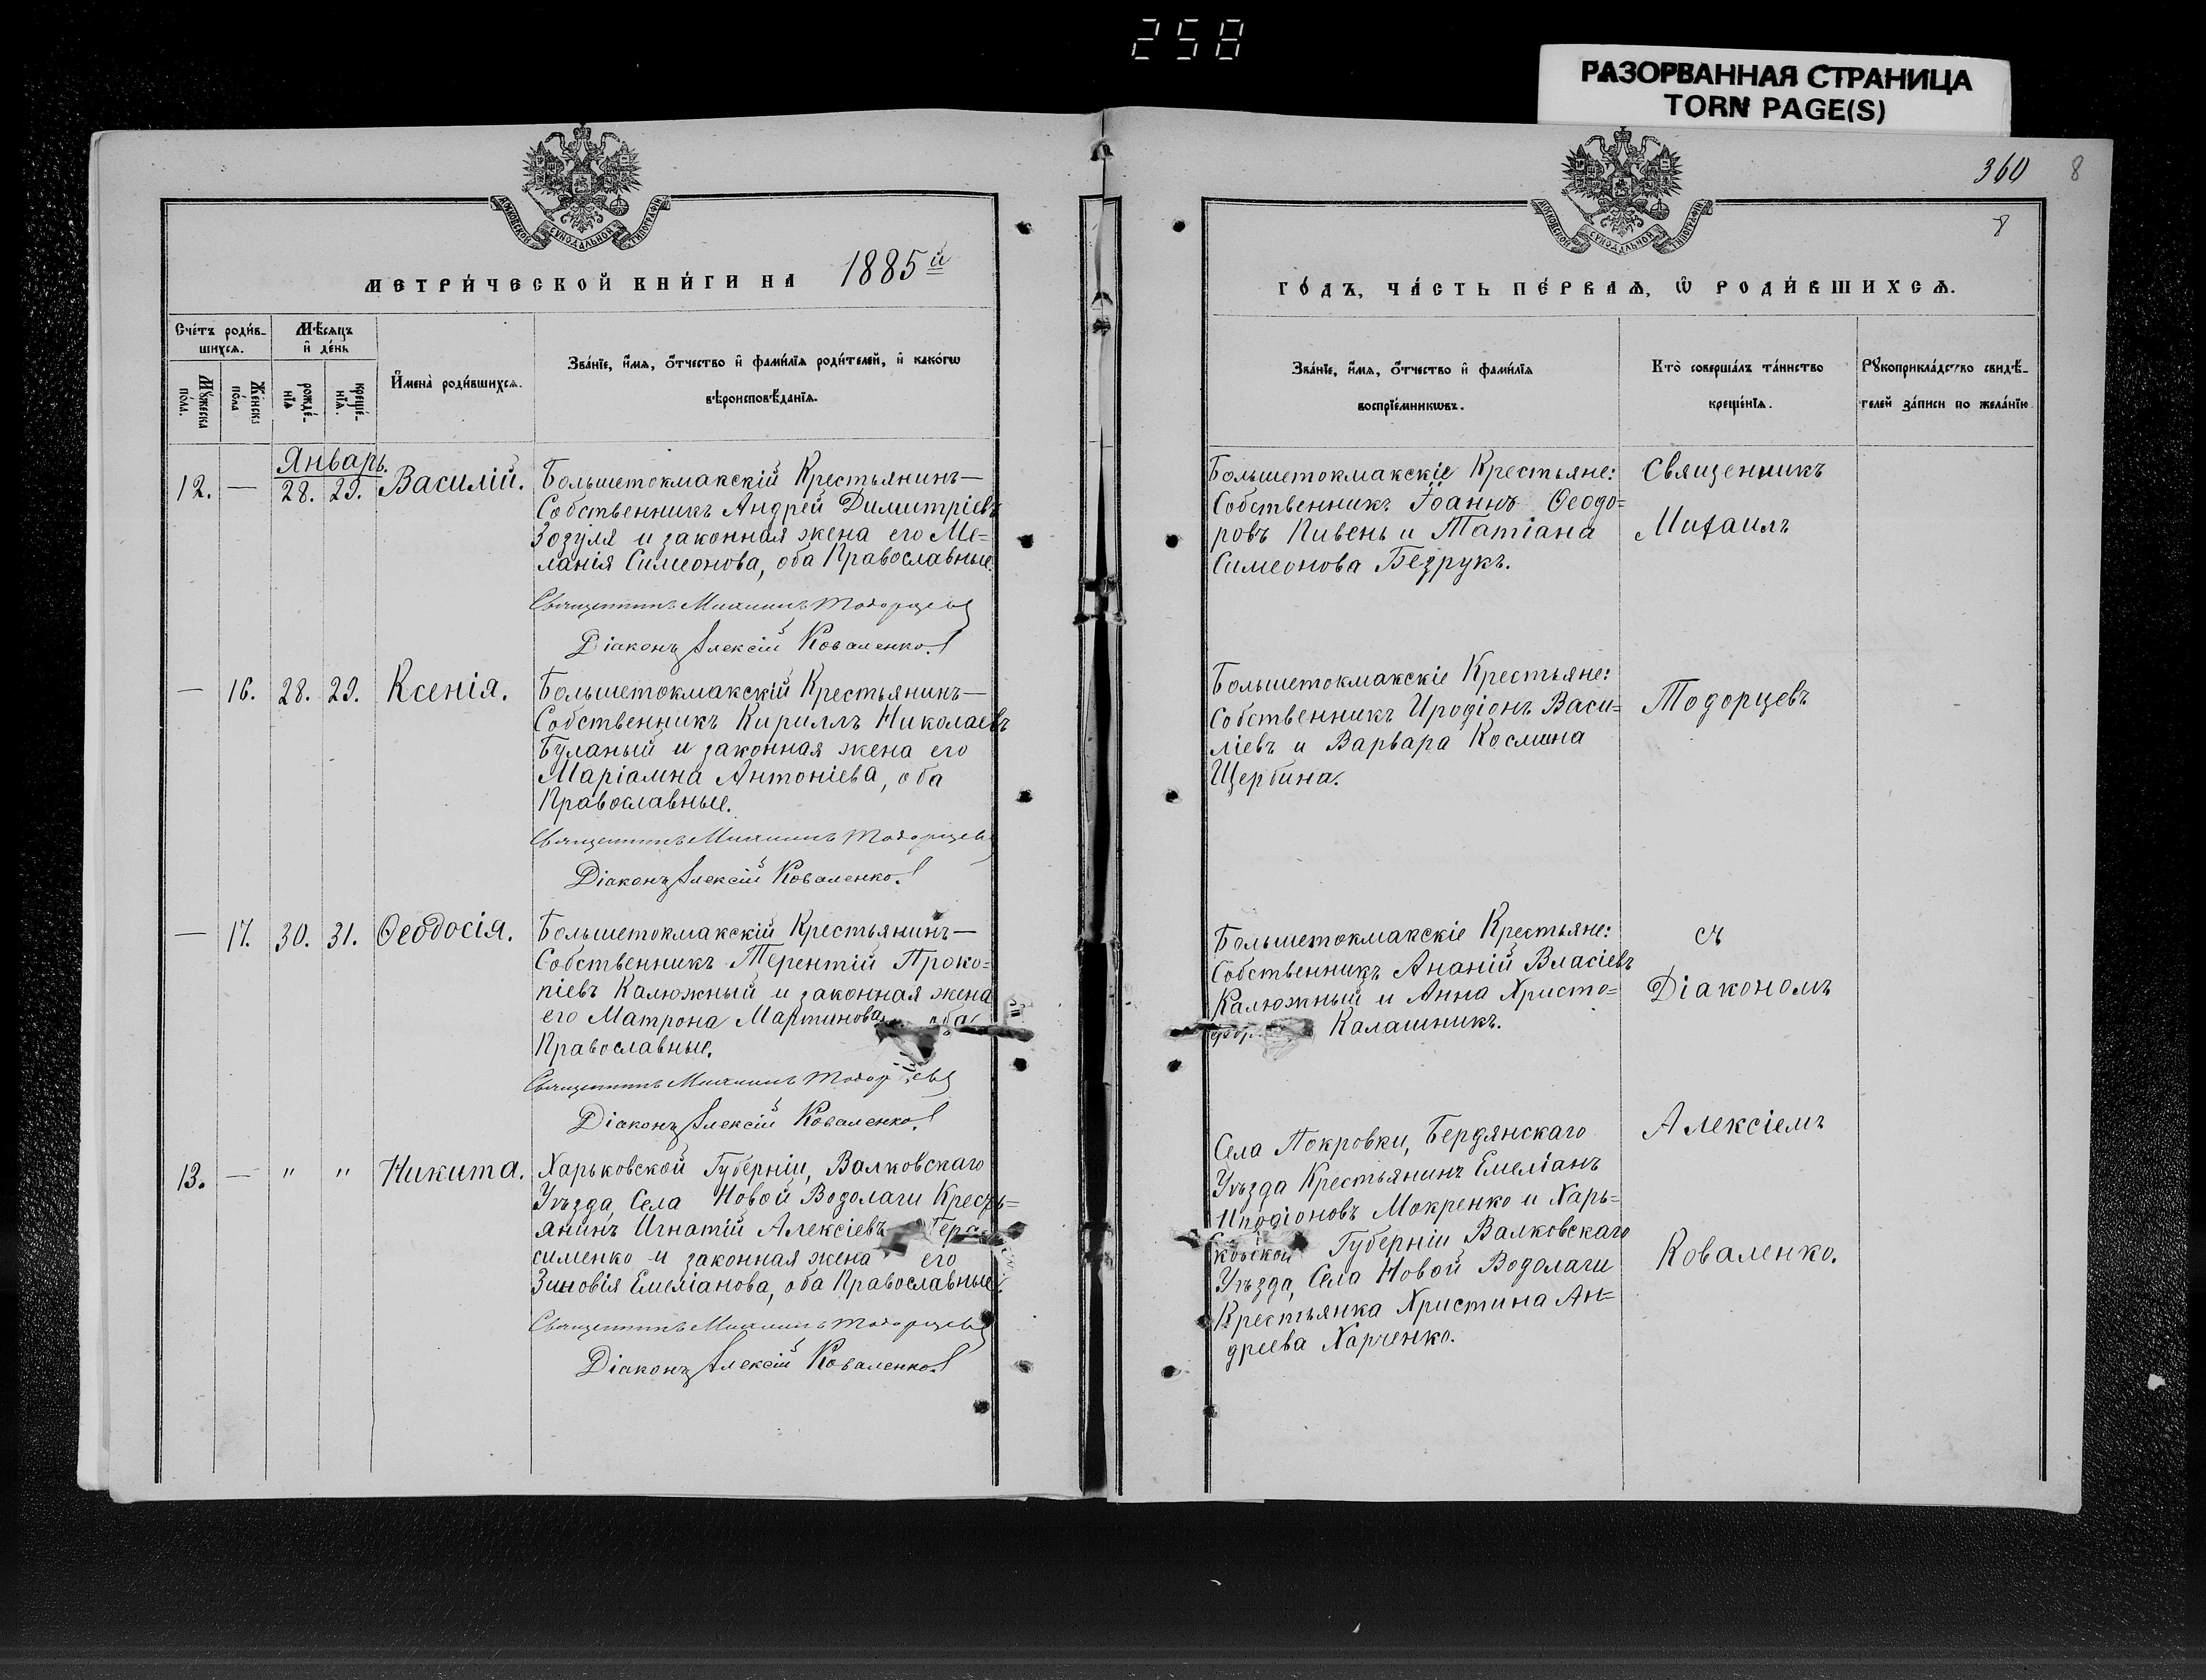 258
РАЗОРВАННАЯ СТРАНИЦА
TORN PAGE(S)
МОСКОВСКОЙ СѴНОДАЛЬНОЙ ТИПОГРАФІИ
МЕТРИ́ЧЕСКОЙ КНИ́ГИ НА 1885й
Сче́тъ роди́в-
шихсѧ.
Мꙋ́жеска по́ла.
Же́нска по́ла
Мѣ́сѧцъ
и҆ де́нь
рожде́-
нїѧ
креще́-
нїѧ.
И҆мена̀ роди́вшихсѧ.
Зва́нїе, и҆́мѧ, ѻ҆́тчество и҆ фами́лїѧ роди́телей, и҆ како́гѡ
вѣроисповѣ́данїѧ.
Январь.
12. — 28. 29. Василій.
Большетокмакскій Крестьянинъ—
Собственникъ Андрей Димитріевъ
Зозуля и законная жена его Ме=
ланія Симеонова, оба Православные.
Священникъ Михаилъ Тодорцевъ
Діаконъ Алексій Коваленко.
— 16. 28. 29. Ксенія.
Большетокмакскій Крестьянинъ—
Собственникъ Кириллъ Николаевъ
Буланый и законная жена его
Маріамна Антоніева, оба
Православные.
Священникъ Михаилъ Тодорцевъ
Діаконъ Алексій Коваленко.
— 17. 30. 31. Ѳеодосія.
Большетокмакскій Крестьянинъ—
Собственникъ Терентій Проко=
піевъ Калюжный и законная жена
его Матрона Мартинова, оба
Православные.
Священникъ Михаилъ Тодорцевъ
Діаконъ Алексій Коваленко.
13. — " " Никита.
Харьковской Губерніи, Валковскаго
Уѣзда, Села Новой Водолаги Кресть=
янинъ Игнатій Алексіевъ Гера
сименко и законная жена его
Зиновія Емеліанова, оба Православные.
Священникъ Михаилъ Тодорцевъ
Діаконъ Алексій Коваленко.
360 8
8
МОСКОВСКОЙ СѴНОДАЛЬНОЙ ТИПОГРАФІИ
ГО́ДЪ, ЧА́СТЬ ПЕ́РВАѦ, Ѡ҆ РОДИ́ВШИХСѦ.
Зва́нїе, и҆́мѧ, ѻ҆́тчество и҆ фами́лїѧ
воспрїе́мникѡвъ.
Кто̀ соверша́лъ та́инство
креще́нїѧ.
Рꙋкоприкла́дство свидѣ́-
телей за́писи по жела́нїю
Большетокмакскіе Крестьяне:
Собственникъ Іоаннъ Ѳеодо=
ровъ Пивень и Татіана
Симеонова Безрукъ.
Большетокмакскіе Крестьяне:
Собственникъ Иродіонъ Васи=
ліевъ и Варвара Космина
Щербина.
Большетокмакскіе Крестьяне:
Собственникъ Ананій Власіевъ
Калюжный и Анна Христо=
фор Калашникъ.
Села Покровки, Бердянскаго
Уѣзда Крестьянинъ Емеліанъ
Иродіоновъ Мокренко и Харь=
ковской Губерніи Валковскаго
Уѣзда, Села Новой Водолаги
Крестьянка Христина Ан=
дреева Харченко.
Священникъ
Михаилъ
Тодорцевъ
съ
Діакономъ
Алексіемъ
Коваленко.